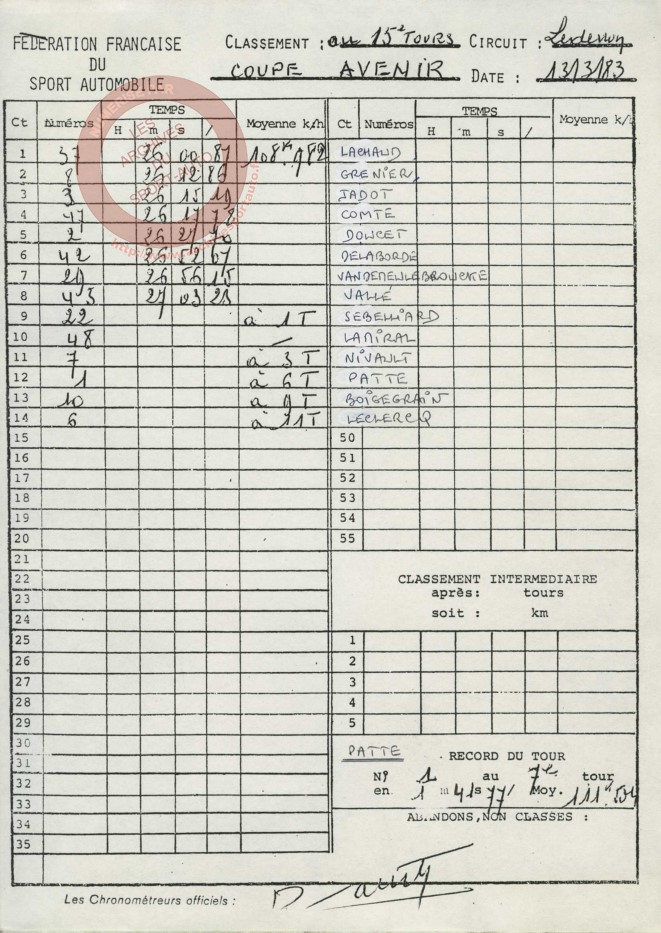 FEDERATION FRANCAISE
DU
SPORT AUTOMOBILE
CLASSEMENT : au 15e TOURS CIRCUIT : Ledenon
COUPE AVENIR DATE : 13/3/83
Ct Numéros TEMPS Moyenne k/h
H m s /
Ct Numéros TEMPS Moyenne k/h
H m s /
1 37 26 00 87 108 K 982 LACHAUD
2 8 26 12 86 GRENIER
3 3 26 15 19 JADOT
4 47 26 17 78 COMTE
5 2 26 27 70 DOUCET
6 42 26 52 67 DELABORDE
7 29 26 56 15 VANDEMEULEBROUCKE
8 43 27 03 23 VALLÉ
9 22 à 1T SEBELLIARD
10 48 LAMIRAL
11 7 à 3T NIVAULT
12 1 à 6T PATTE
13 10 à 9T BOISEGRAIN
14 6 à 11T LECLERCQ
15 50
16 51
17 52
18 53
19 54
20 55
21
22
23
24
CLASSEMENT INTERMEDIAIRE
après: tours
soit : km
25 1
26 2
27 3
28 4
29 5
30
31
32
33
34
35
PATTE RECORD DU TOUR
N° 1 au 7e tour
en 1 m 41s 77/ Moy. 111 K 504
ABANDONS,NON CLASSES :
Les Chronomètreurs officiels :
LES
ARCHIVES
DU
SPORT-AUTO